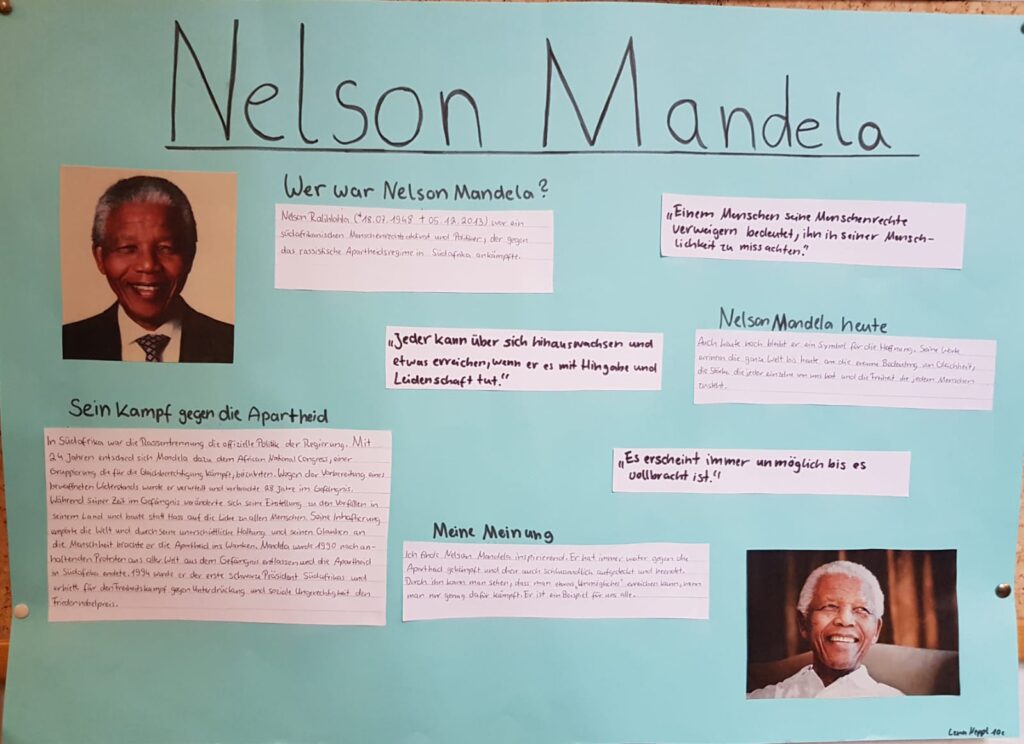 Nelson Mandela
Wer war Nelson Mandela?
Nelson Rolihlahla (*18.07.1948 † 05.12.2013) war ein
südafrikanischer Menschenrechtsaktivist und Politiker, der gegen
das rassistische Apartheidsregime in Südafrika ankämpfte.
„Einem Menschen seine Menschenrechte
verweigern bedeutet, ihn in seiner Mensch-
lichkeit zu missachten."
„Jeder kann über sich hinauswachsen und
etwas erreichen, wenn er es mit Hingabe und
Leidenschaft tut."
Nelson Mandela heute
Auch heute noch bleibt er ein Symbol für die Hoffnung. Seine Werke
erinnern die ganze Welt bis heute an die enorme Bedeutung von Gleichheit,
die Stärke die jeder einzelne von uns hat und die Freiheit die jedem Menschen
zusteht.
Sein Kampf gegen die Apartheid
In Südafrika war die Rassentrennung die offizielle Politik der Regierung. Mit
24 Jahren entschied sich Mandela dazu dem African National Congress, einer
Gruppierung die für die Gleichberechtigung kämpft, beizutreten. Wegen der Vorbereitung eines
bewaffneten Widerstands wurde er verurteilt und verbrachte 28 Jahre im Gefängnis.
Während seiner Zeit im Gefängnis veränderte sich seine Einstellung zu den Vorfällen in
seinem Land und baute statt Hass auf die Liebe zu allen Menschen. Seine Inhaftierung
empörte die Welt und durch seine Haltung und seinen Glauben an
die Menschheit brachte er die Apartheid ins Wanken. Mandela wurde 1990 nach an-
haltenden Protesten aus aller Welt aus dem Gefängnis entlassen und die Apartheid
in Südafrika endete. 1994 wurde er der erste schwarze Präsident Südafrikas und
erhielt für den Freiheitskampf gegen Unterdrückung und soziale Ungerechtigkeit den
Friedensnobelpreis.
„Es erscheint immer unmöglich bis es
vollbracht ist."
Meine Meinung
Ich finde Nelson Mandela inspirierend. Er hat immer weiter gegen die
Apartheid gekämpft und diese auch schlussendlich aufgedeckt und beendet.
Durch ihn kann man sehen, dass man etwas „Unmögliches" erreichen kann, wenn
man nur genug dafür kämpft. Er ist ein Beispiel für uns alle.
10c